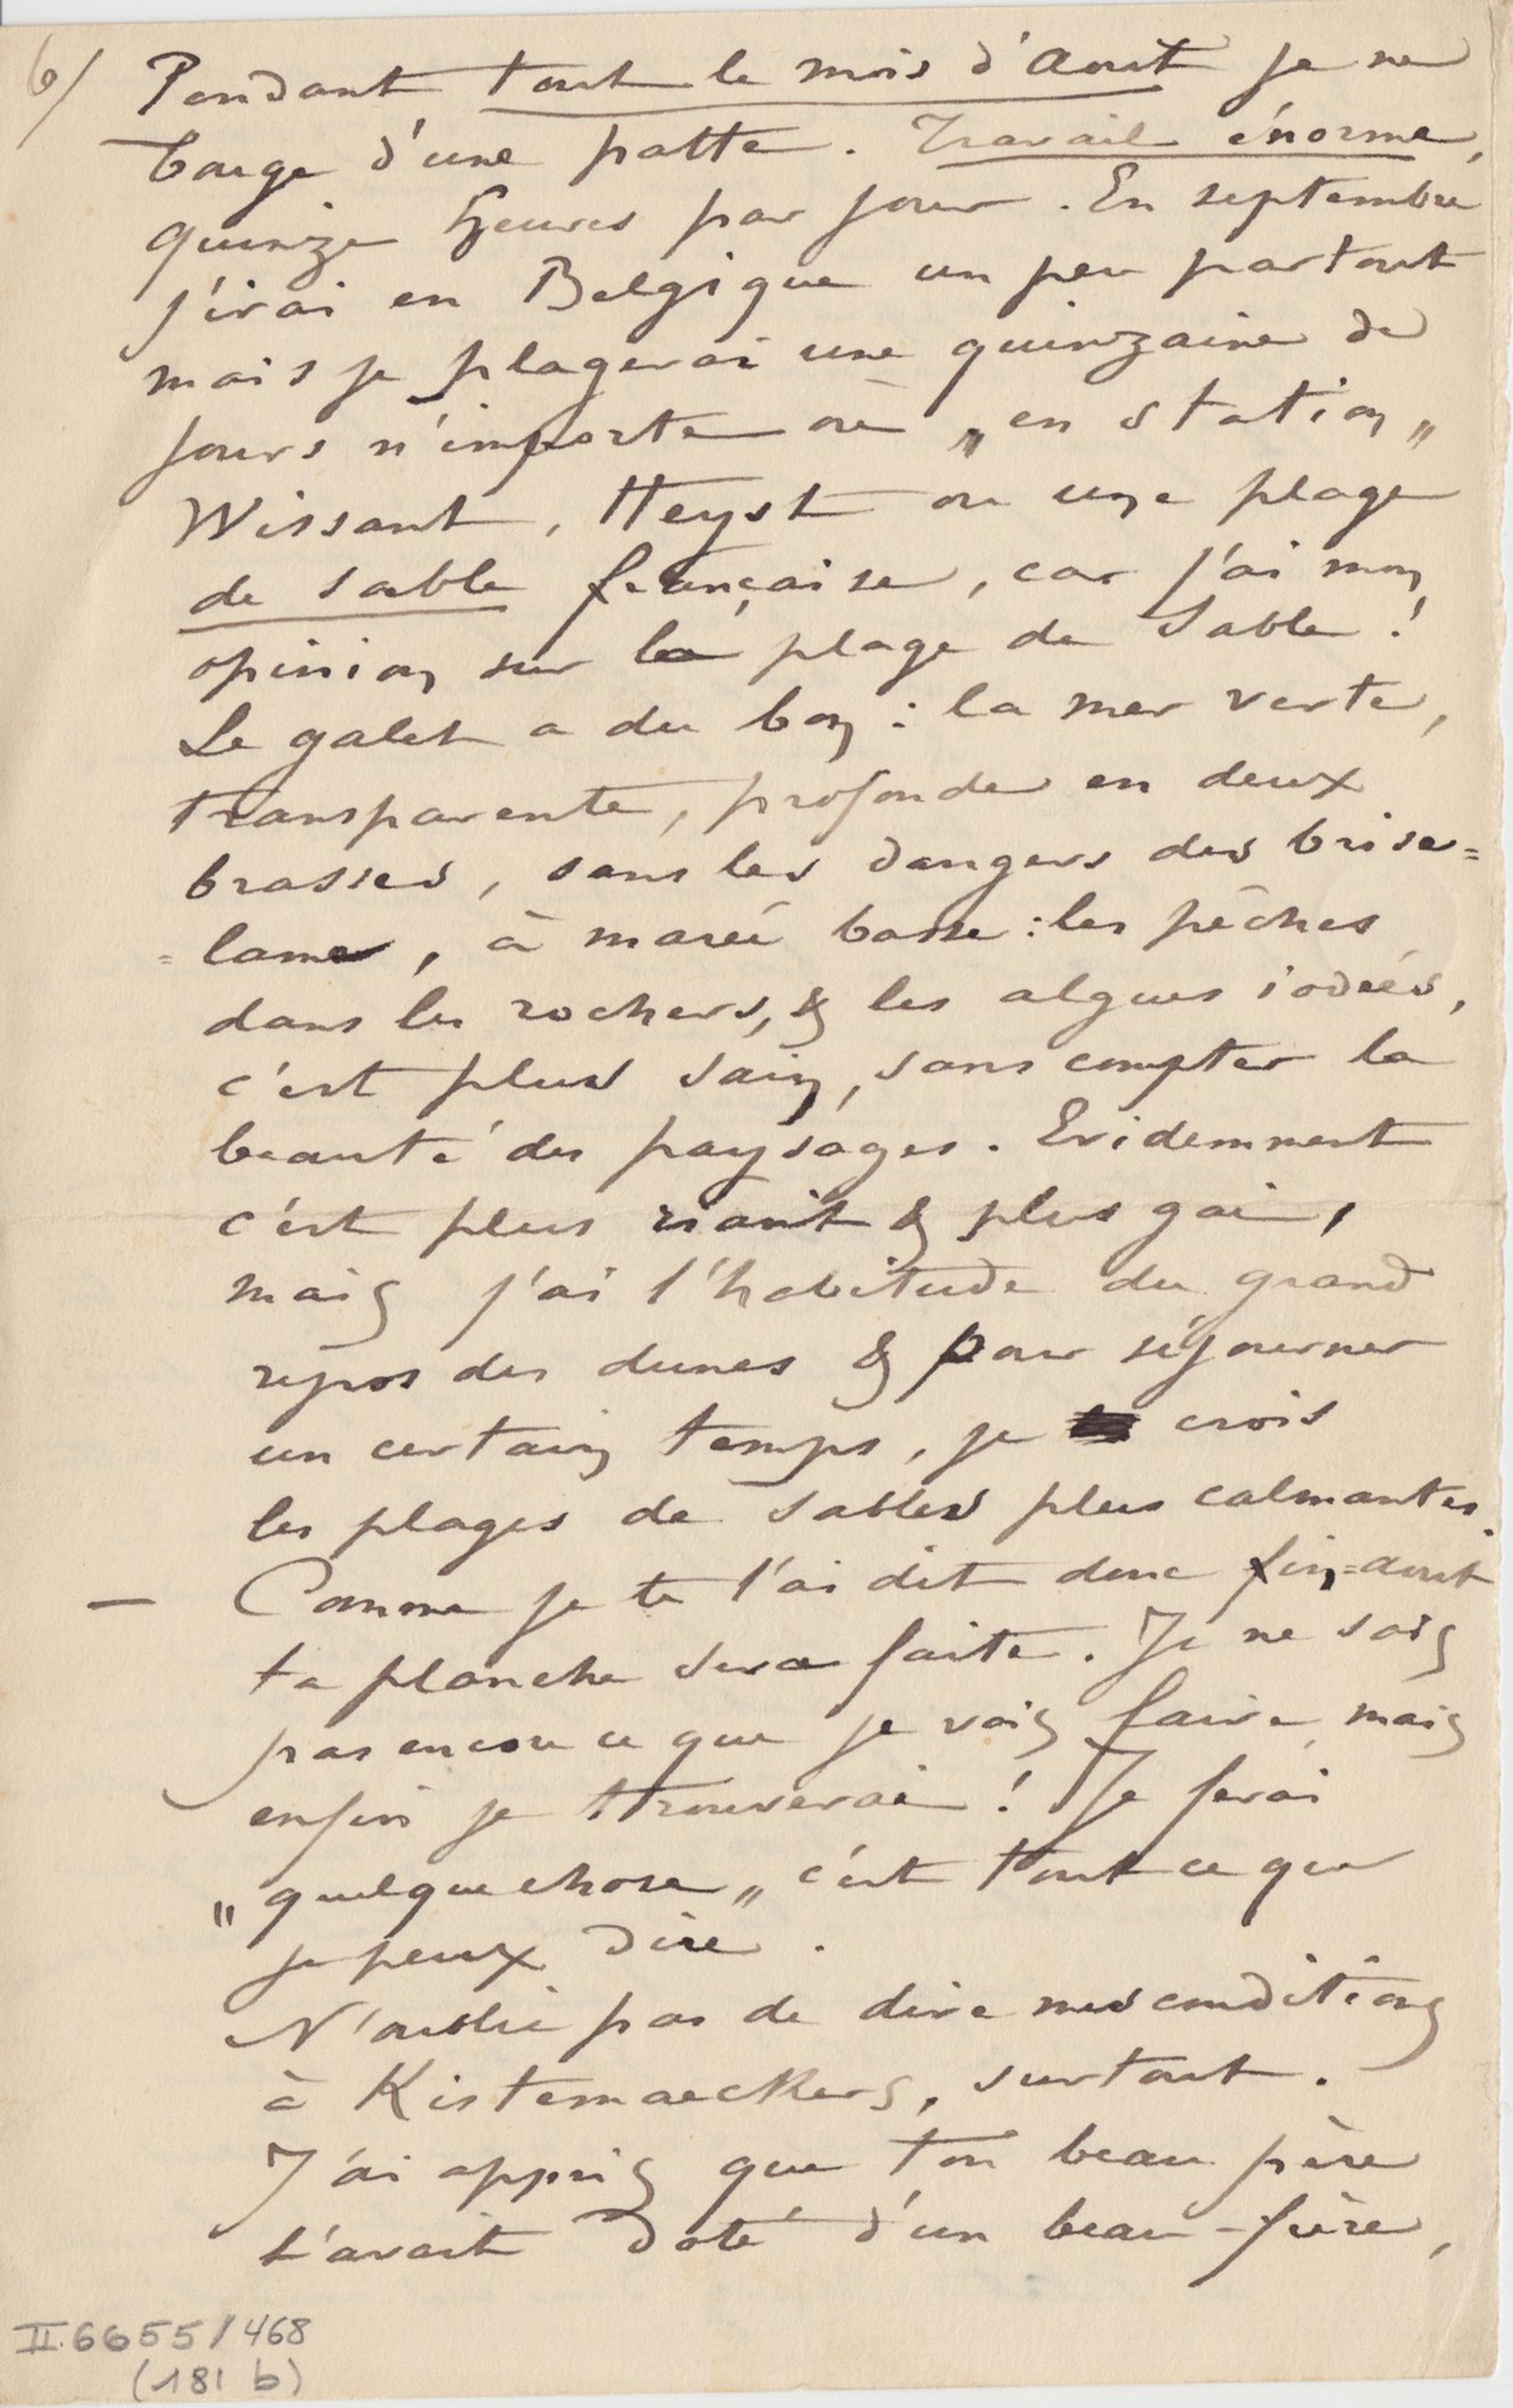 6/
Pendant tout le mois d'Aout je ne
bouge d'une patte. Travail énorme,
quinze heures par jour. En septembre
j'irai en Belgique un peu partout
mais je plagerai une quinzaine de
jours n'importe où „en station„
Wissant, Heyst ou une plage
de sable française, car j'ai mon
opinion sur la plage de Sable!
Le galet a du bon: la mer verte,
transparente, profonde en deux
brasses, sans les dangers des brise=
=lames, à mareé basse: les pêches
dans les rochers, & les algues iodeés,
c'est plus sain, sans compter la
beauté des paysages. Evidemment
c'est plus riant & plus gai,
mais j'ai l'habitude du grand
repos des dunes & pour séjourner
un certain temps, je crois
les plages de sables plus calmantes.
— Comme je te l'ai dit donc fin=aout
ta planche sera faite. Je ne sais
pas encore ce que je vais faire mais
enfin je trouverai! Je ferai
„quelque chose„ c'est tout ce que
je peux dire.
N'oublie pas de dire mes conditions
à Kistemaeckers, surtout.
J'ai appris que ton beau père
t'avait doté d'un beau-frère,
II.6655/468
(181 b)